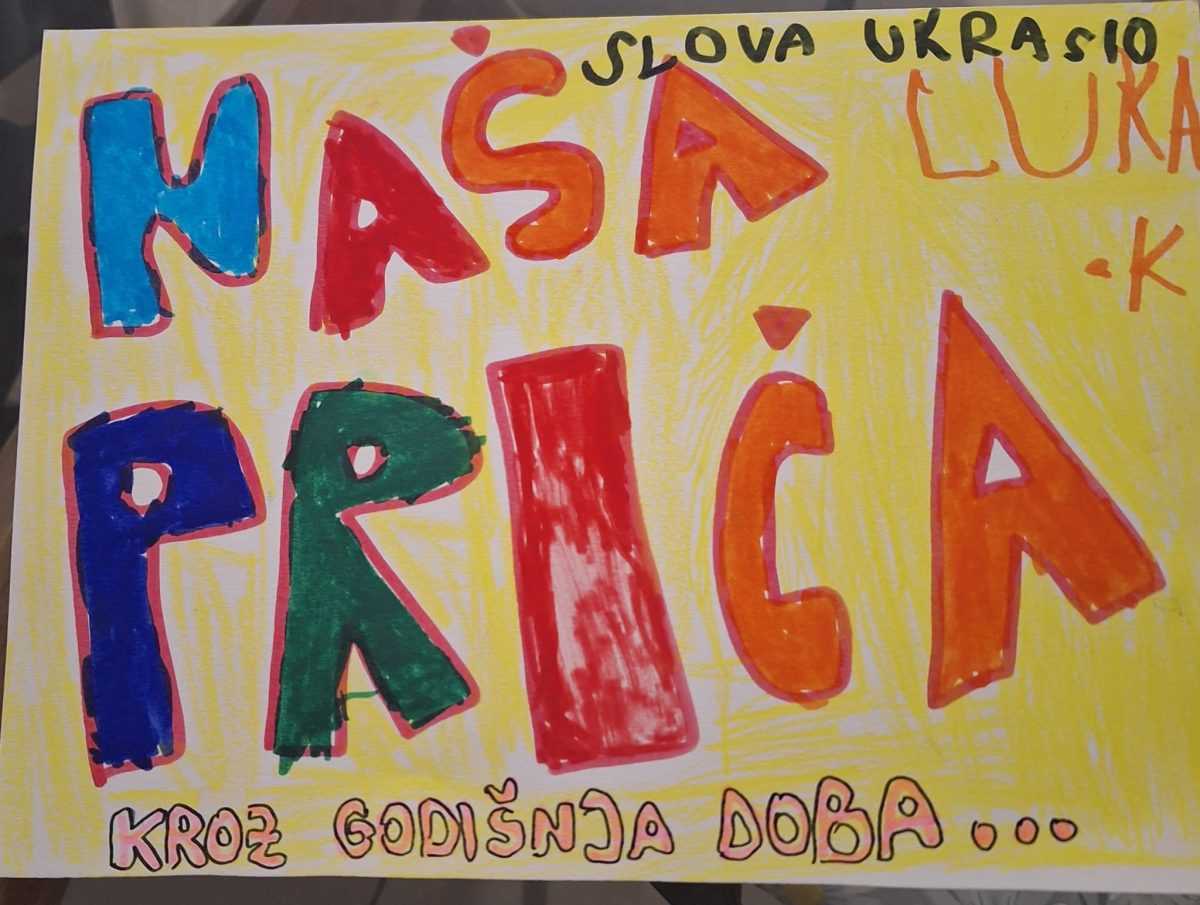 SLOVA UKRASIO
LUKA
.K
NAŠA
PRIČA
KROZ GODIŠNJA DOBA...